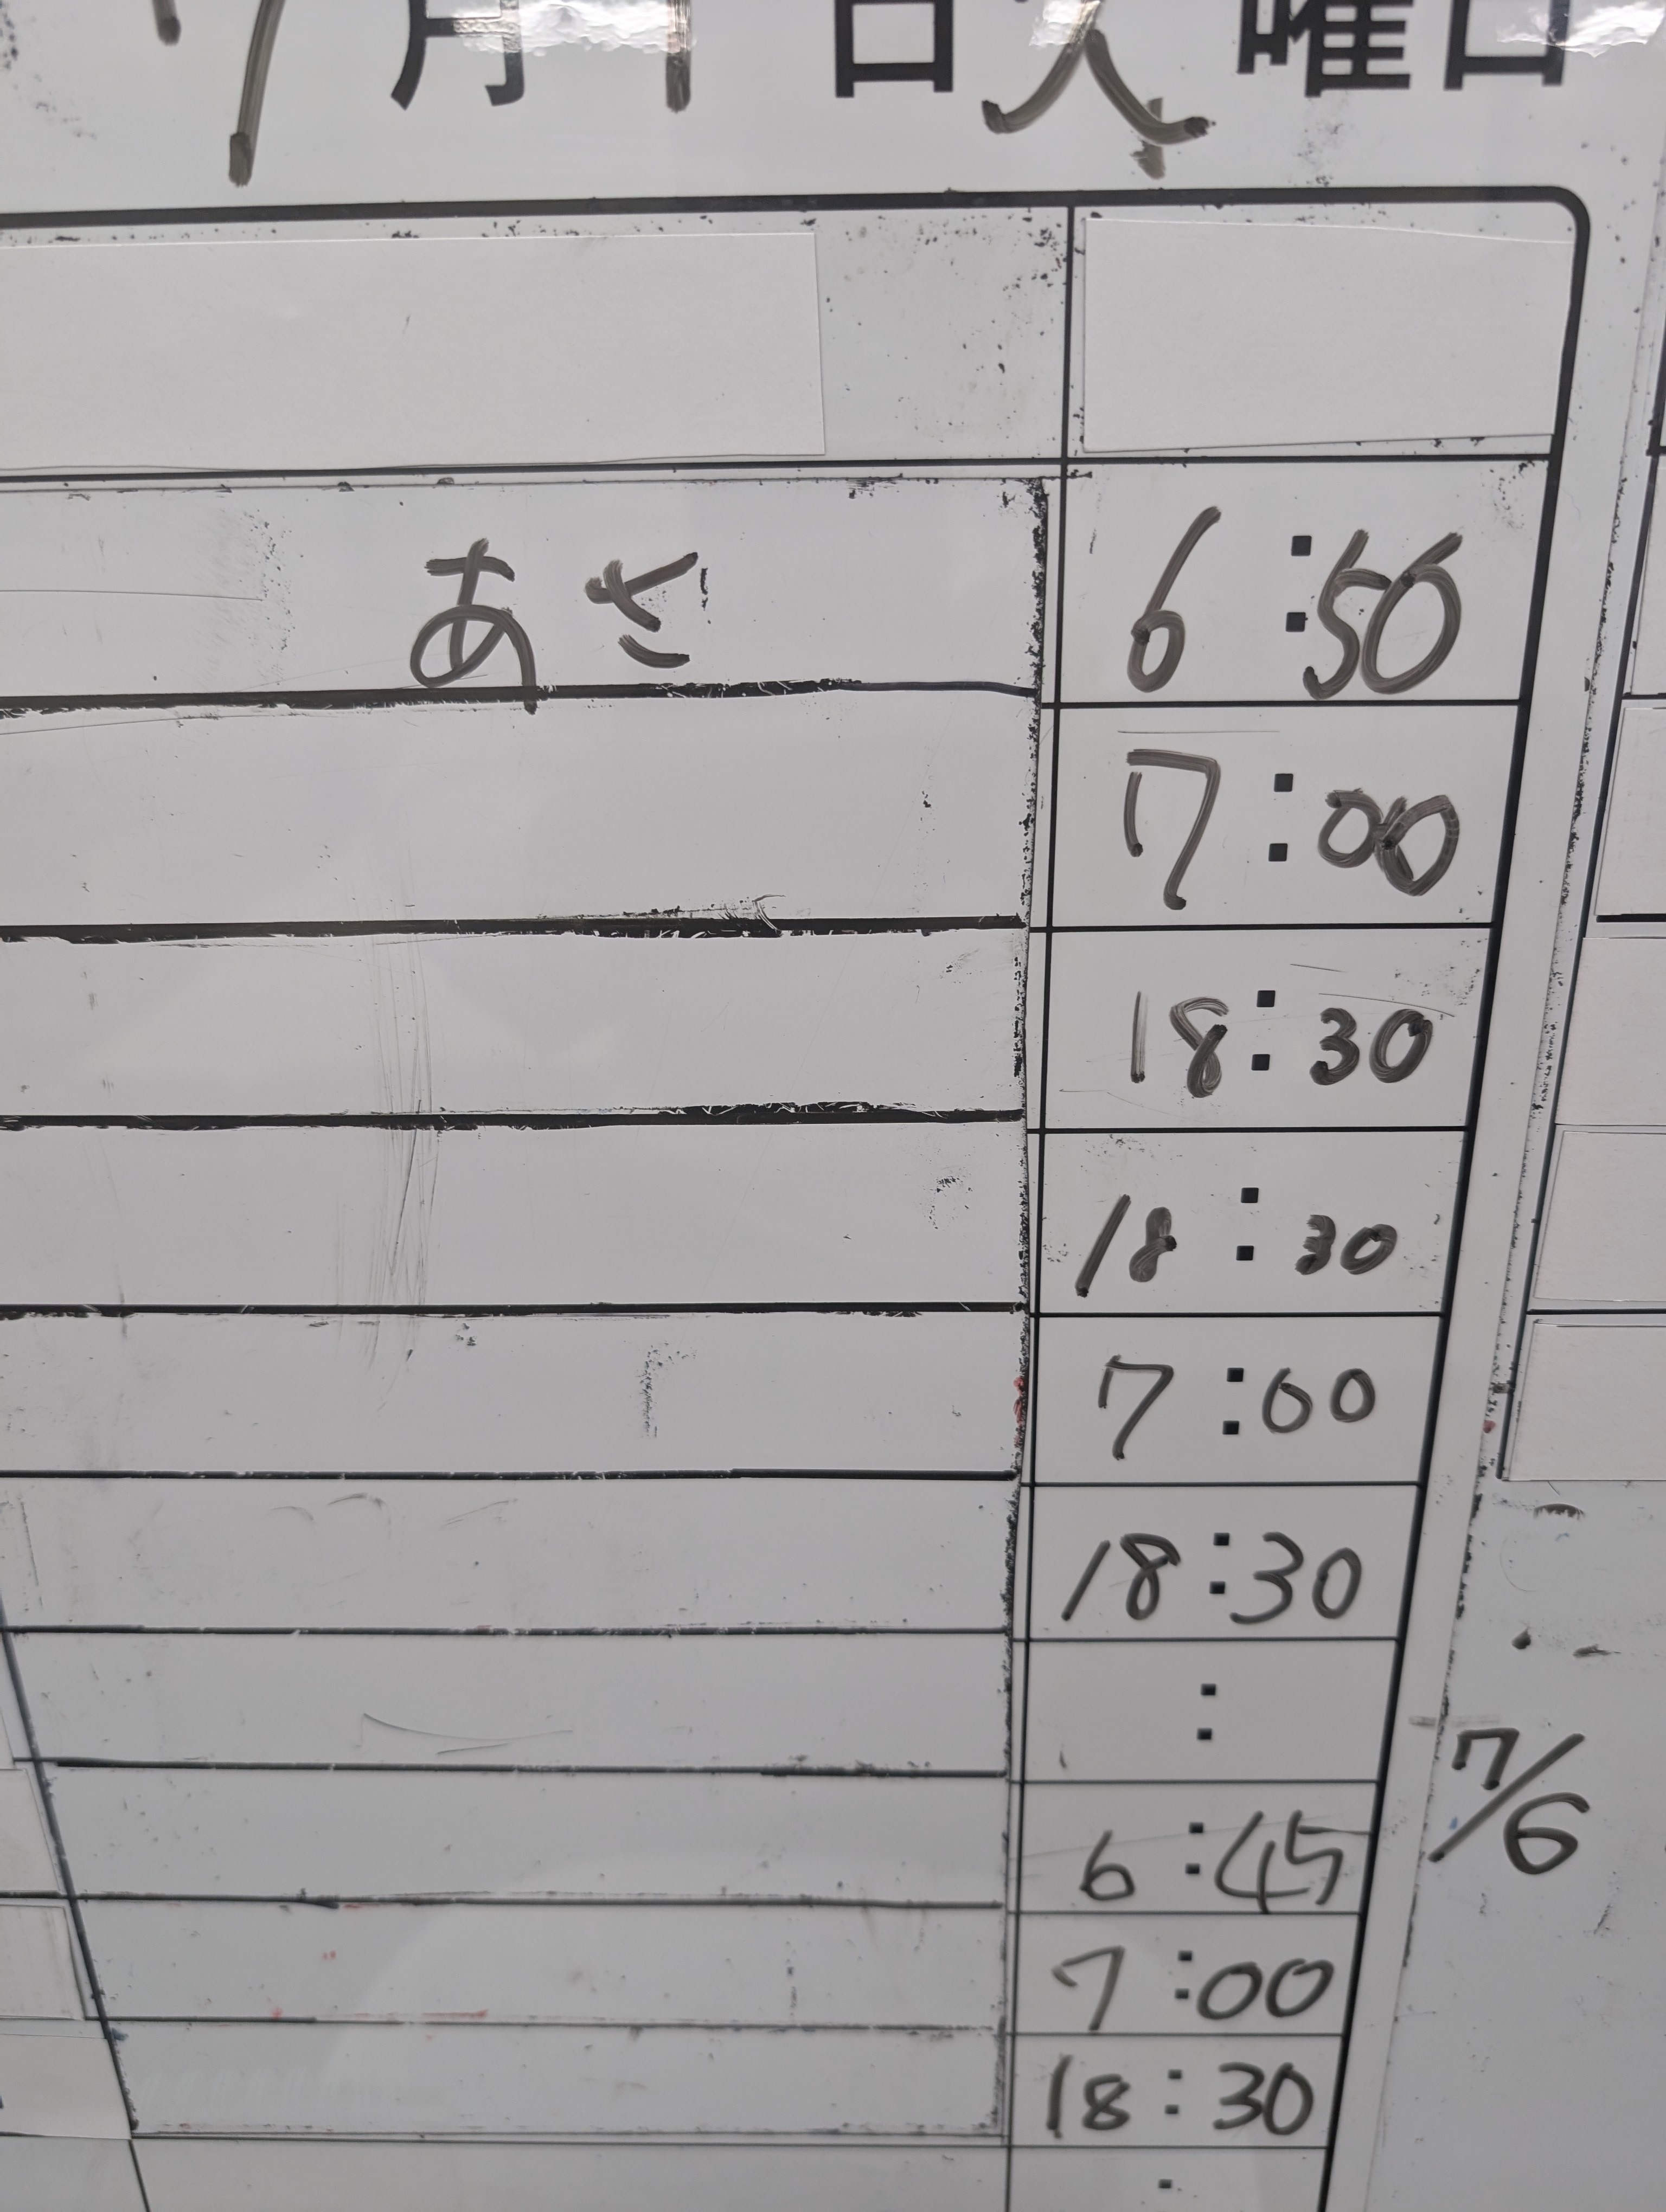 7月1日火曜日
あさ 6:50
7:00
18:30
18:30
7:00
18:30
:
6:45
7/6
7:00
18:30
: